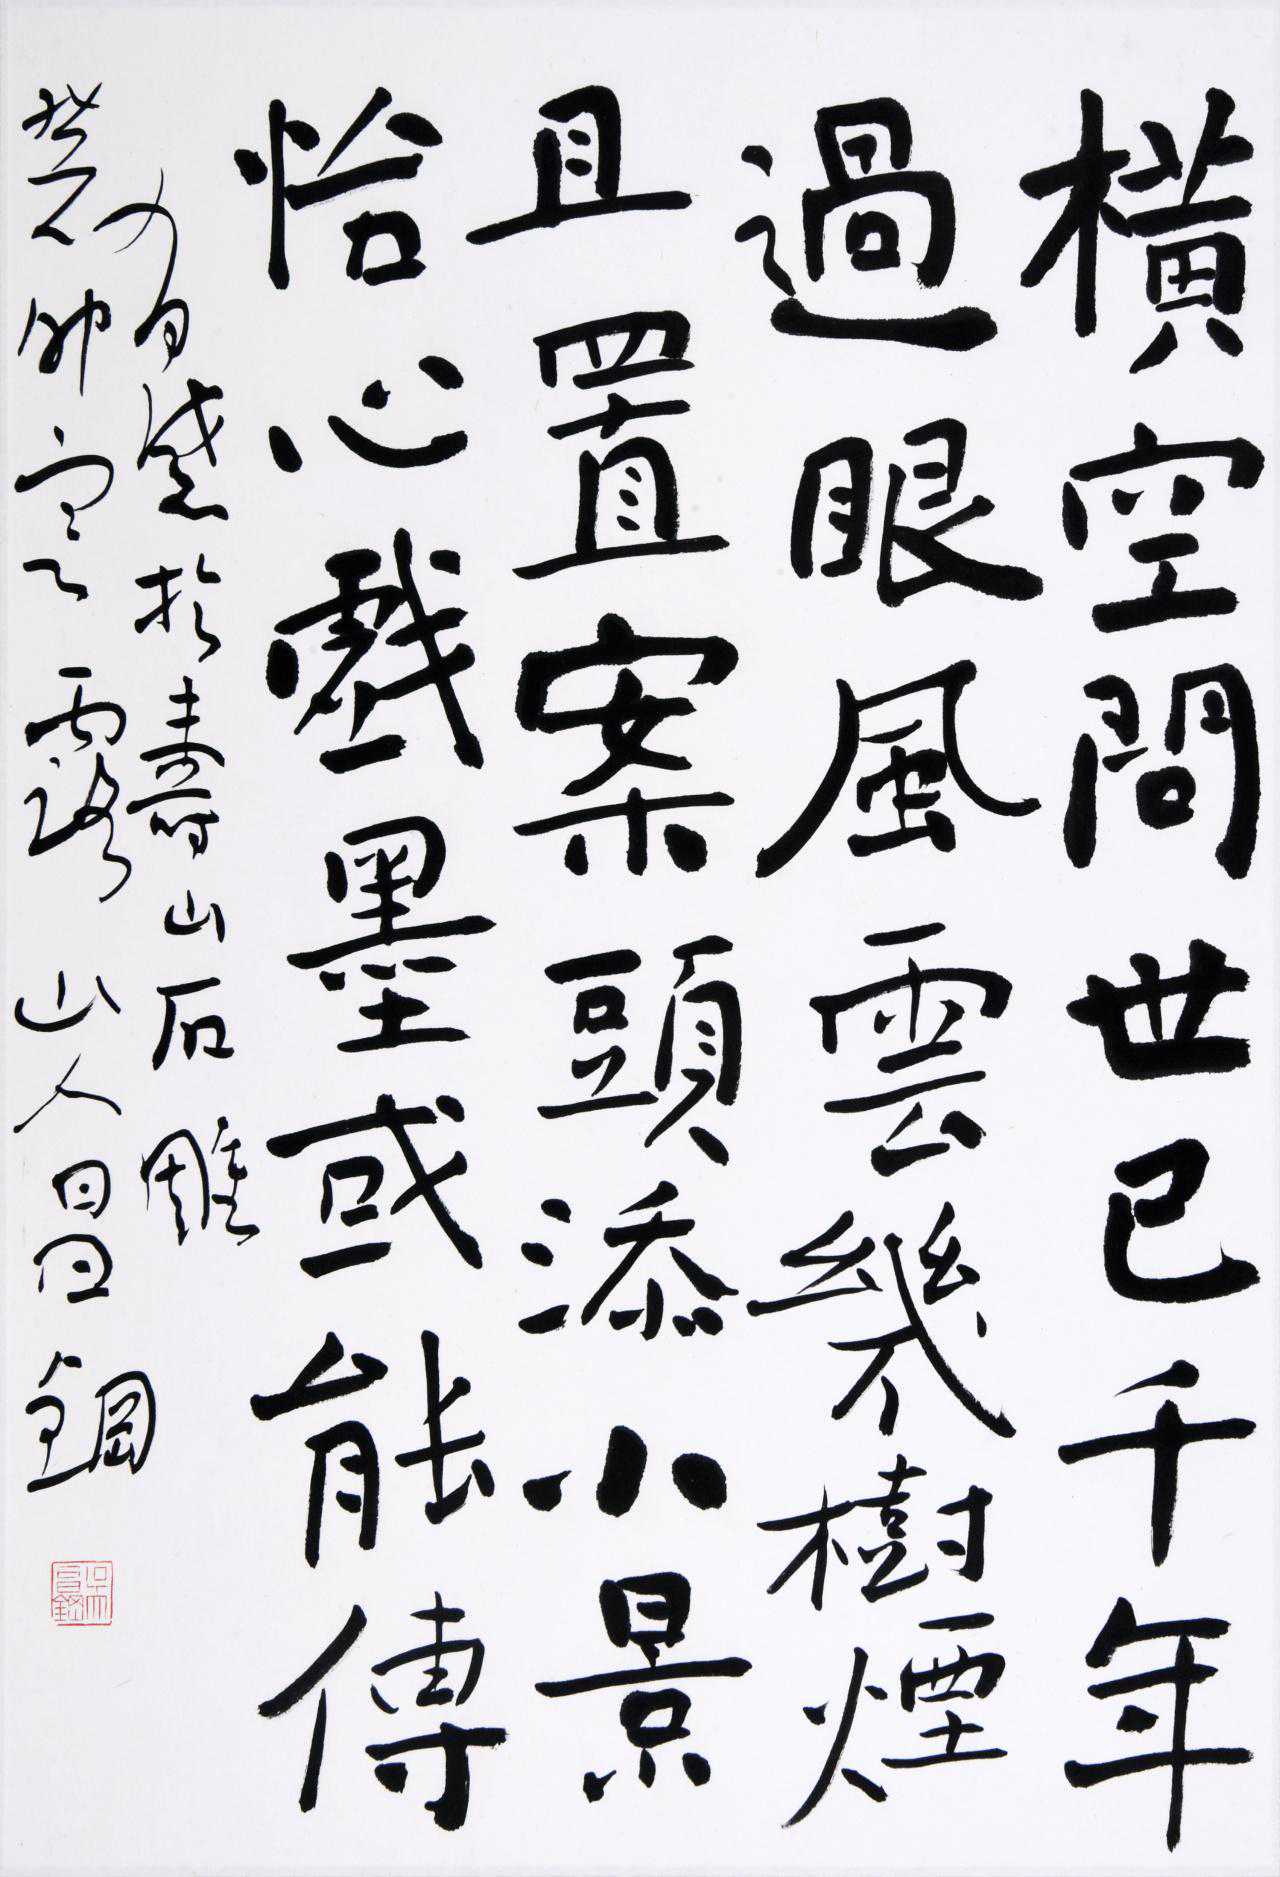 橫空問世已千年
過眼風雲幾樹煙
且置案頭添小景
怡心戲墨或能傳
有感於壽山石雕
癸卯寒露山人昌鋼